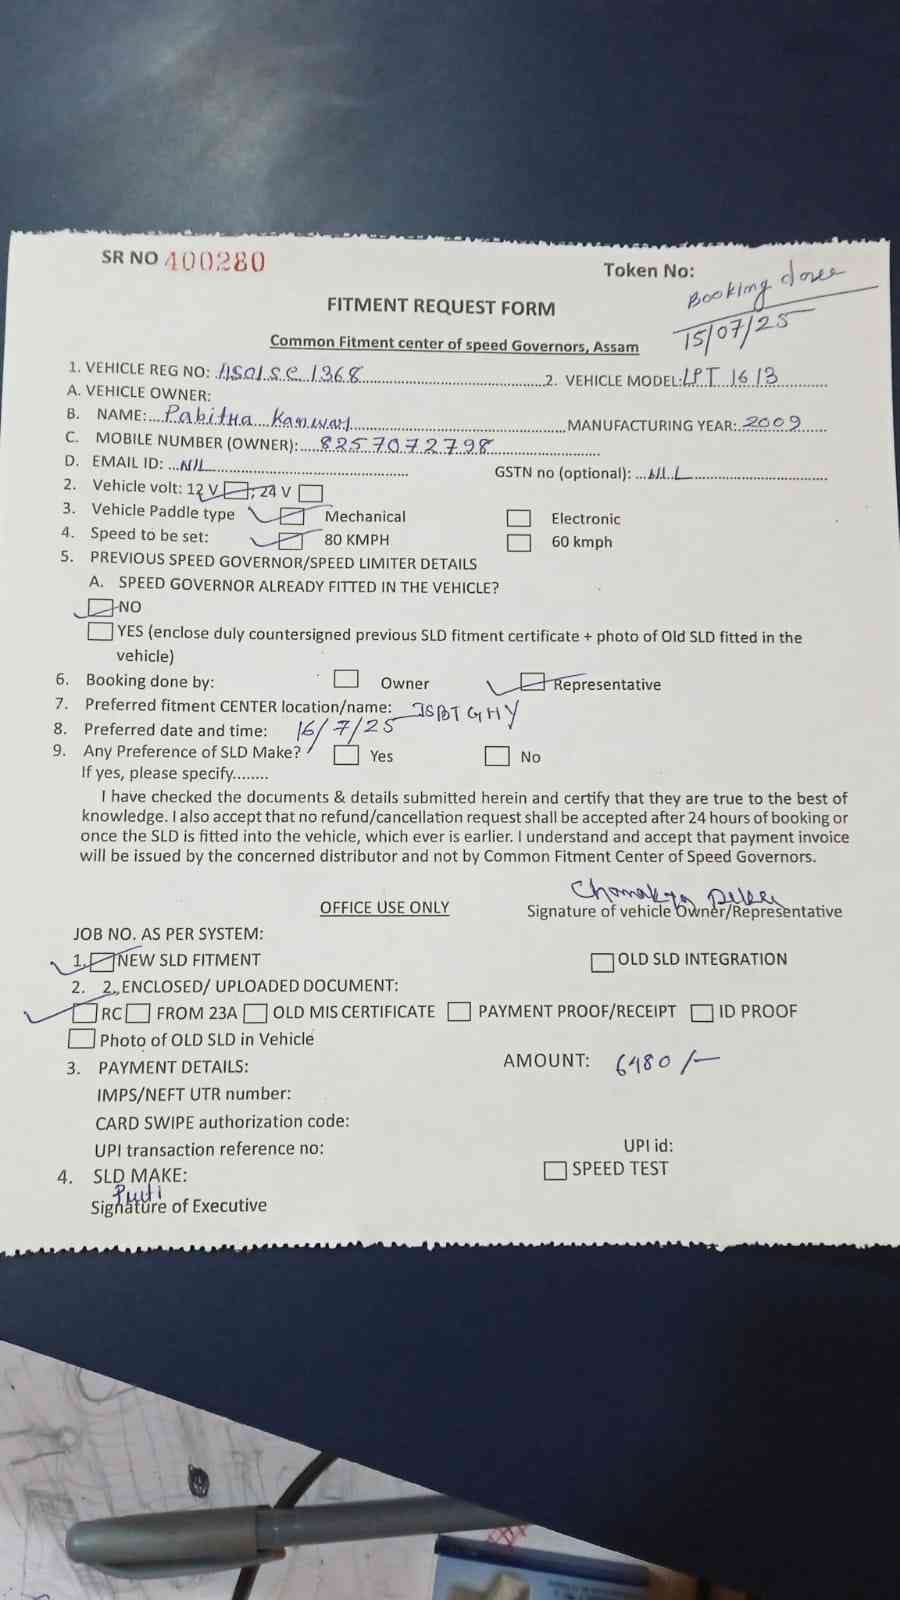 SR NO 400280
Token No:
Booking done
15/07/25
FITMENT REQUEST FORM
Common Fitment center of speed Governors, Assam
1. VEHICLE REG NO: AS01SC 1368 2. VEHICLE MODEL: LPT 1613
A. VEHICLE OWNER:
B. NAME: Pabitra Kanwar MANUFACTURING YEAR: 2009
C. MOBILE NUMBER (OWNER): 8257072798
D. EMAIL ID: NIL GSTN no (optional): NIL
2. Vehicle volt: 12 V ; 24 V
3. Vehicle Paddle type Mechanical Electronic
4. Speed to be set: 80 KMPH 60 kmph
5. PREVIOUS SPEED GOVERNOR/SPEED LIMITER DETAILS
A. SPEED GOVERNOR ALREADY FITTED IN THE VEHICLE?
NO
YES (enclose duly countersigned previous SLD fitment certificate + photo of Old SLD fitted in the
vehicle)
6. Booking done by: Owner Representative
7. Preferred fitment CENTER location/name: ISBT GHY
8. Preferred date and time: 16/7/25
9. Any Preference of SLD Make? Yes No
If yes, please specify........
I have checked the documents & details submitted herein and certify that they are true to the best of
knowledge. I also accept that no refund/cancellation request shall be accepted after 24 hours of booking or
once the SLD is fitted into the vehicle, which ever is earlier. I understand and accept that payment invoice
will be issued by the concerned distributor and not by Common Fitment Center of Speed Governors.
OFFICE USE ONLY Signature of vehicle Owner/Representative
JOB NO. AS PER SYSTEM:
1. NEW SLD FITMENT OLD SLD INTEGRATION
2. 2. ENCLOSED/ UPLOADED DOCUMENT:
RC FROM 23A OLD MIS CERTIFICATE PAYMENT PROOF/RECEIPT ID PROOF
Photo of OLD SLD in Vehicle
3. PAYMENT DETAILS: AMOUNT: 6980/-
IMPS/NEFT UTR number:
CARD SWIPE authorization code:
UPI transaction reference no: UPI id:
4. SLD MAKE: SPEED TEST
Signature of Executive